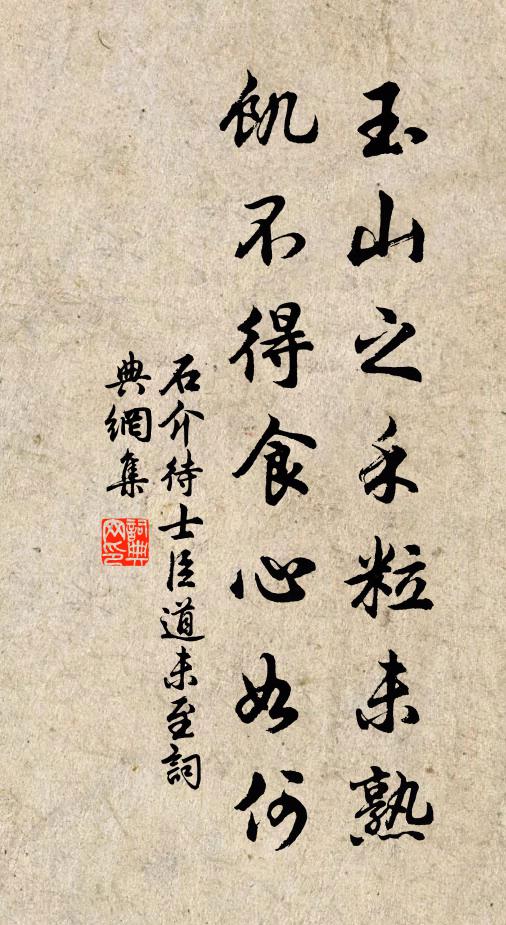 玉山之禾粒未熟
飢不得食心如何
石介待士臣道未至詞
典網集
詞典
网印